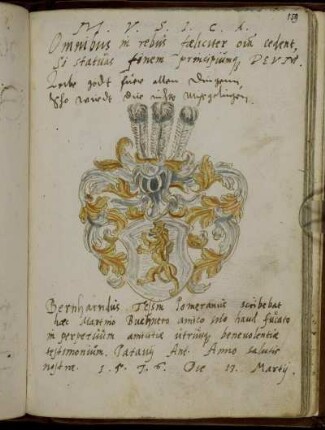 159
M. V. S. I. C. A.
Omnibus in rebus fæliciter oīa cedent,
Si statuas finem principiumq; DEVM.
Lobe gott fuer allen Dingenn,
So wirdt dir nichts
Bernhardus Pomeranus scribebat
hæc Martino Buchnero amico suo haud fucato
in perpetuum amicitiæ utriusq; benevolentiæ
testimonium. Patavij Ant. Anno salutis
nostræ. 1. 5. 7. 6. Die 13. Martij.